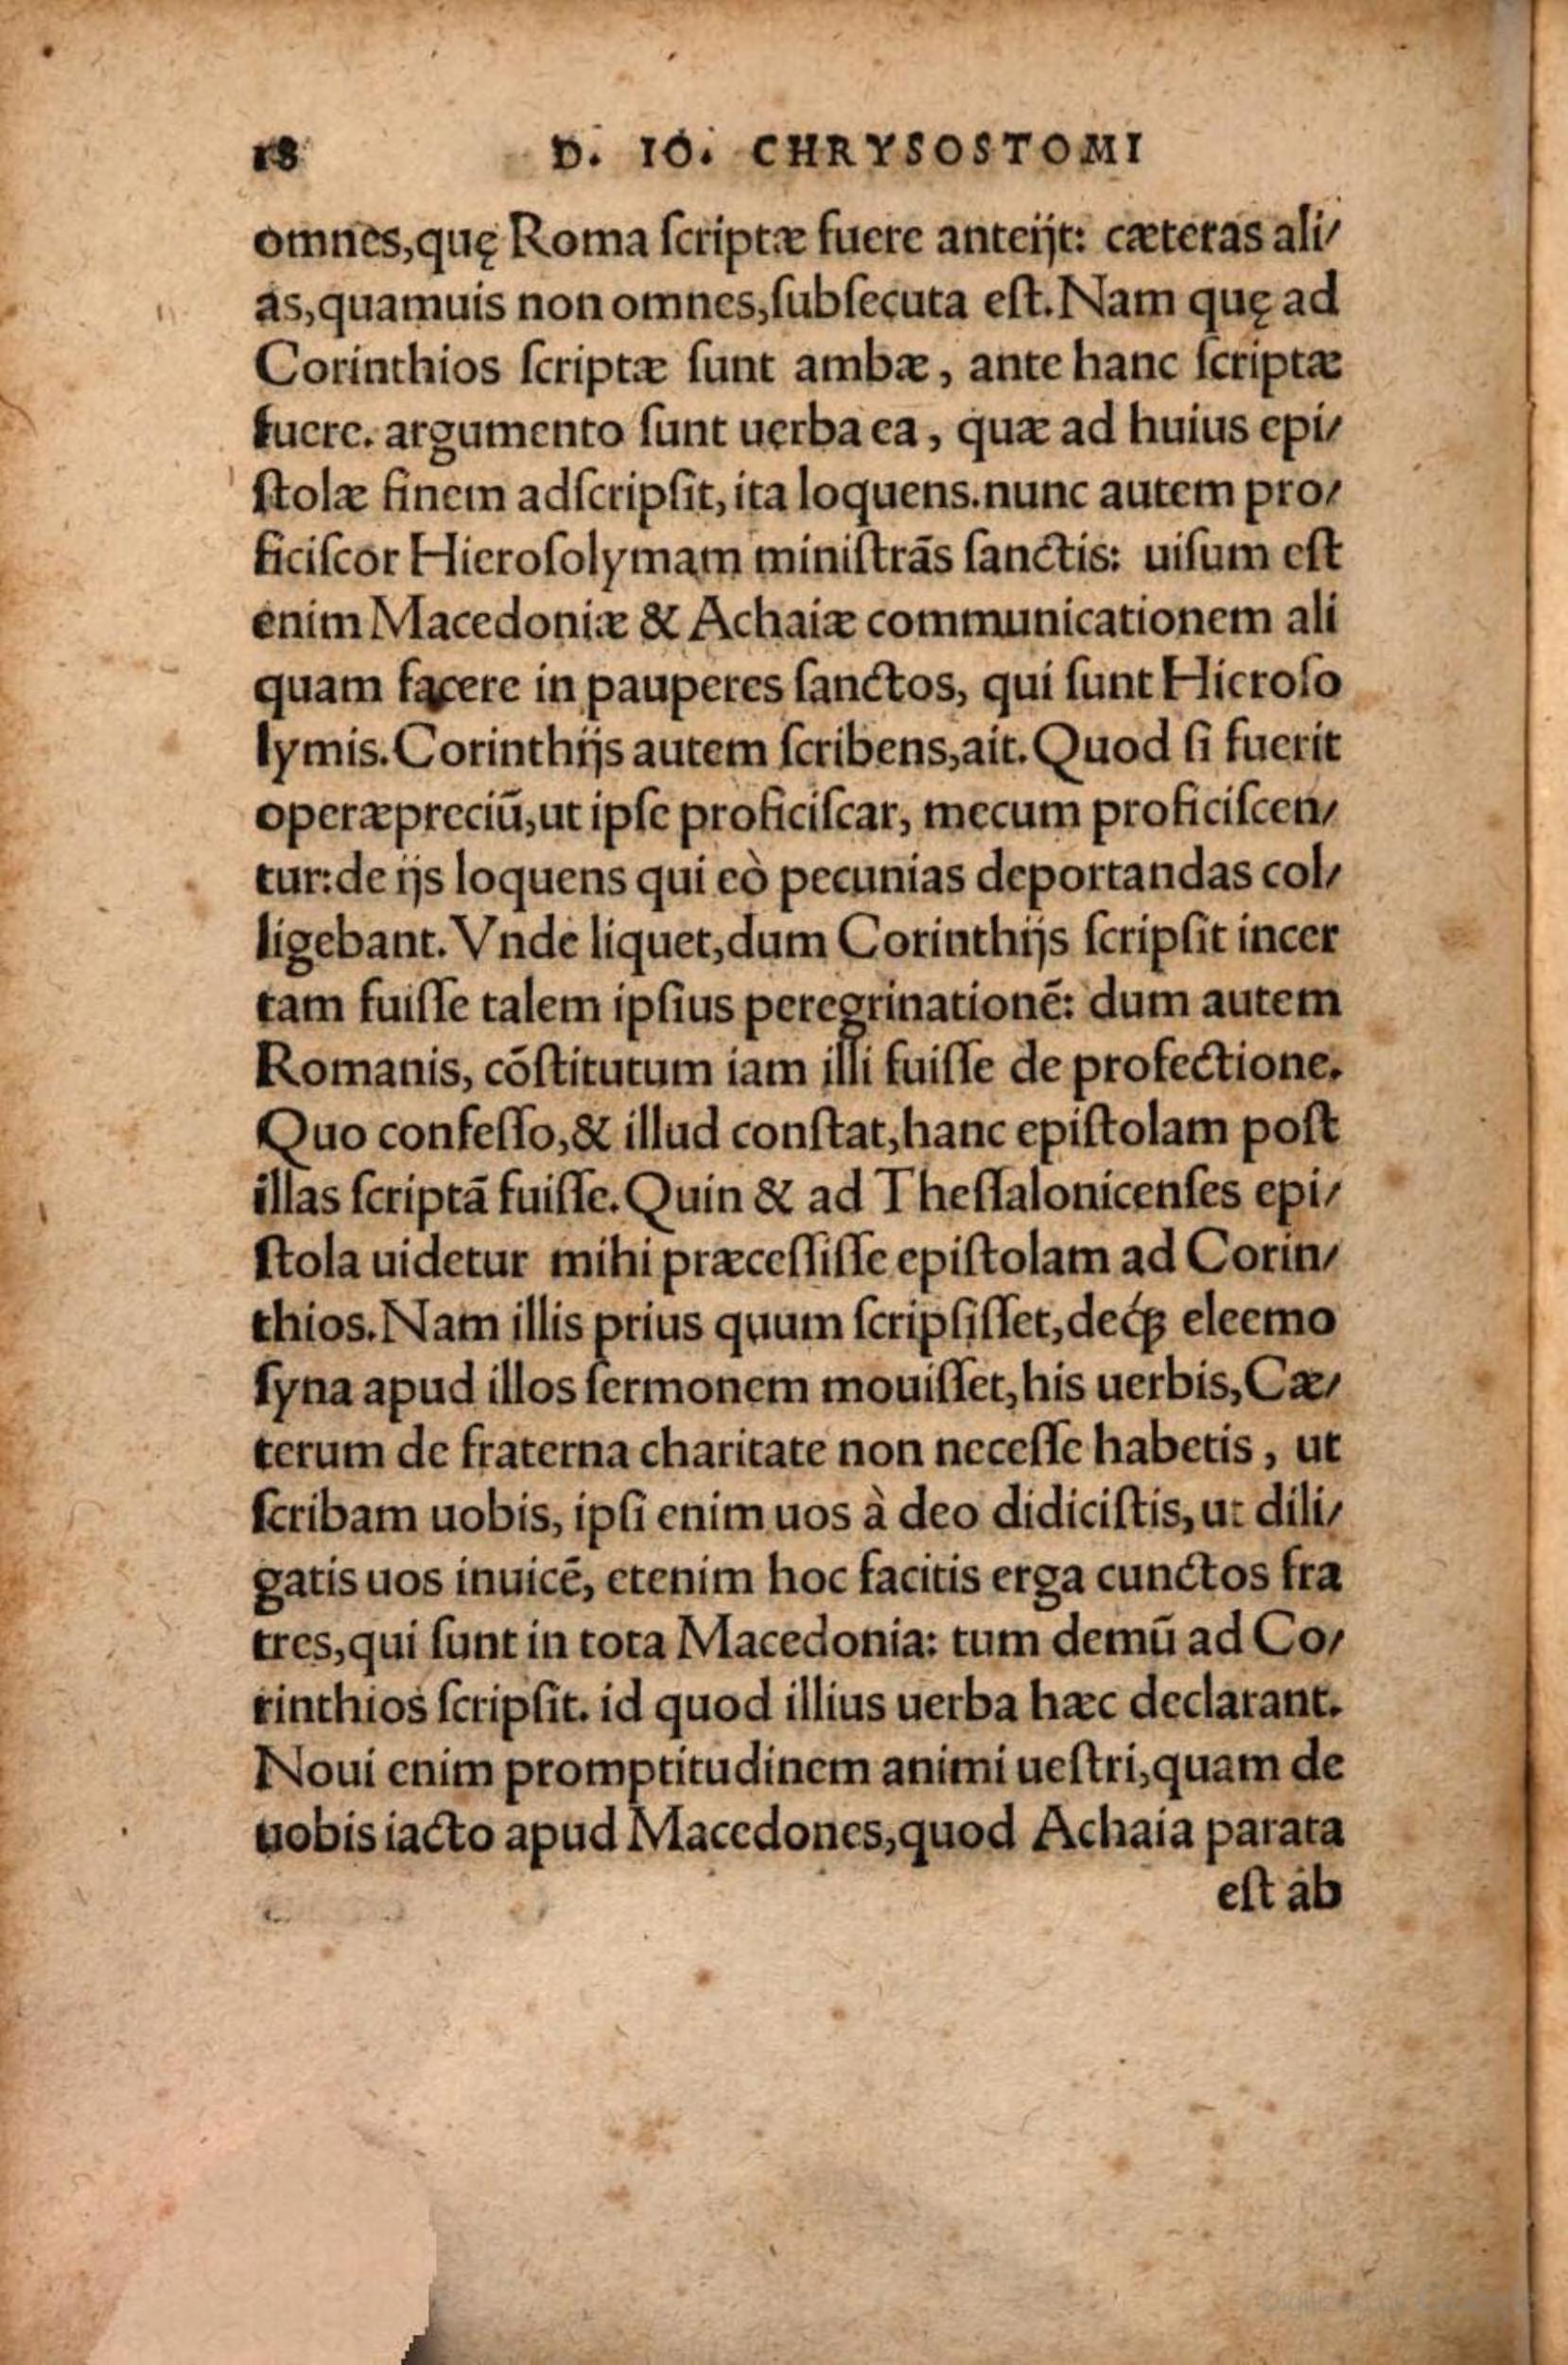 18 D. IO. CHRYSOSTOMI
omnes,quę Roma ſcriptæ fuere anteijt: cæteras ali/
as,quamuis non omnes,ſubſecuta eſt.Nam quę ad
Corinthios ſcriptæ ſunt ambæ, ante hanc ſcriptæ
fuere. argumento ſunt uerba ea, quæ ad huius epi/
ſtolæ finem adſcripſit, ita loquens.nunc autem pro/
ficiſcor Hieroſolymam miniſtrãs ſanctis: uiſum eſt
enim Macedoniæ & Achaiæ communicationem ali
quam facere in pauperes ſanctos, qui ſunt Hieroſo
lymis.Corinthijs autem ſcribens,ait. Quod ſi fuerit
operæpreciũ,ut ipſe proficiſcar, mecum proficiſcen/
tur:de ijs loquens qui eò pecunias deportandas col/
ligebant. Vnde liquet,dum Corinthijs ſcripſit incer
tam fuiſſe talem ipſius peregrinationẽ: dum autem
Romanis, cõſtitutum iam illi fuiſſe de profectione.
Quo confeſſo,& illud conſtat,hanc epiſtolam poſt
illas ſcriptã fuiſſe. Quin & ad Theſſalonicenſes epi/
ſtola uidetur mihi præceſſiſſe epiſtolam ad Corin/
thios.Nam illis prius quum ſcripſiſſet,deq́ꝫ eleemo
ſyna apud illos ſermonem mouiſſet,his uerbis,Cæ/
terum de fraterna charitate non neceſſe habetis, ut
ſcribam uobis, ipſi enim uos à deo didiciſtis, ut dili/
gatis uos inuicẽ, etenim hoc facitis erga cunctos fra
tres,qui ſunt in tota Macedonia: tum demũ ad Co/
rinthios ſcripſit. id quod illius uerba hæc declarant.
Noui enim promptitudinem animi ueſtri,quam de
uobis iacto apud Macedones,quod Achaia parata
eſt ab